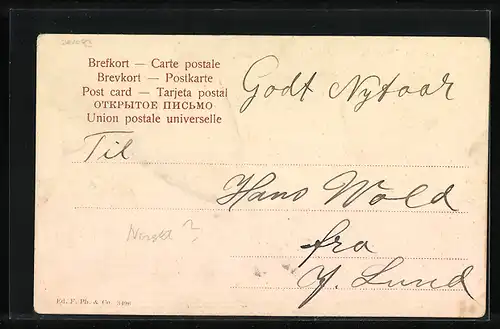 Brefkort — Carte postale
Brevkort — Postkarte
Post card — Tarjeta postal
ОТКРЫТОЕ ПИСЬМО
Union postale universelle
Godt Nytaar
Til
Hans Wold
fra
Lund
Ed. F. Ph. & Co. 3496